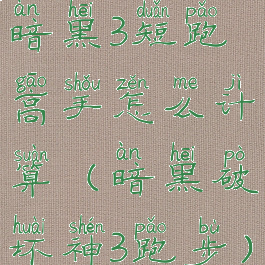 àn hēi duǎn pǎo
暗黑3短跑
gāo shǒu zěn me jì
高手怎么计
suàn àn hēi pò
算（暗黑破
huài shén pǎo bù
坏神3跑步）